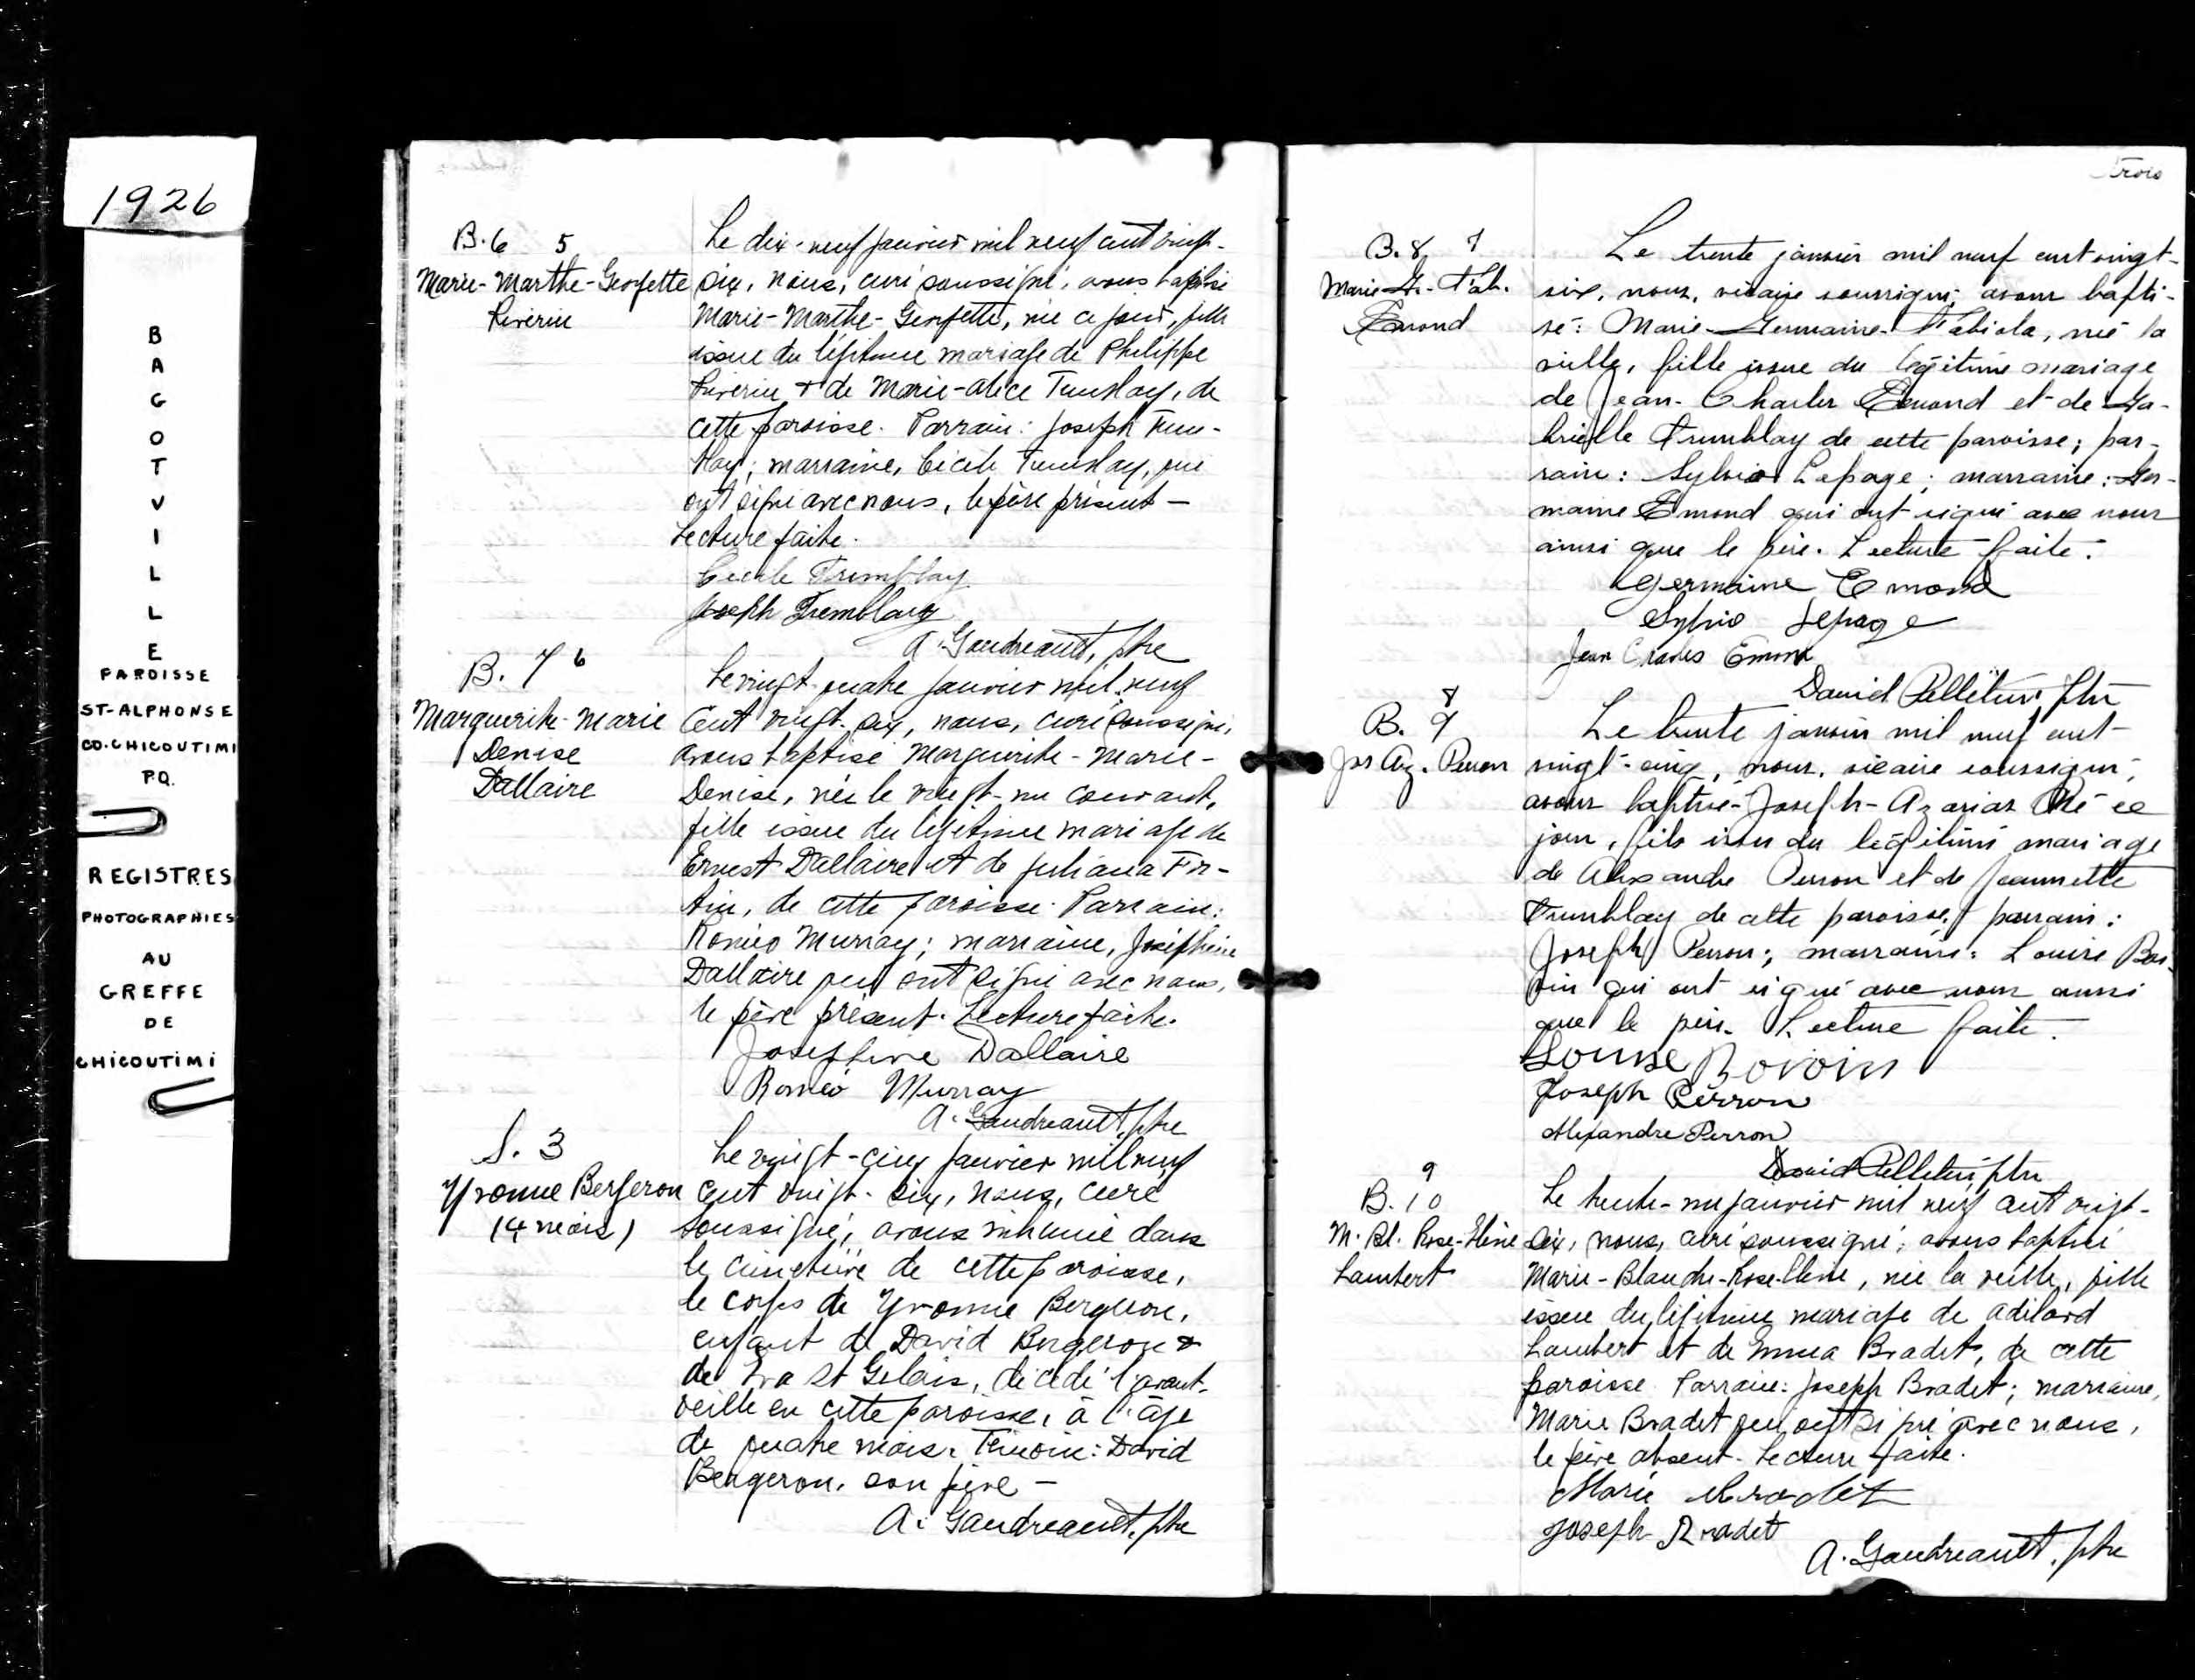 1926
BAGOTVILLE
PAROISSE
ST-ALPHONSE
CO. CHICOUTIMI
P.Q.
REGISTRES
PHOTOGRAPHIES
AU
GREFFE
DE
CHICOUTIMI
B. 6 5
Marie-Marthe-Georgette
Riverin
Le dix-neuf janvier mil neuf cent vingt-
six, nous, curé soussigné, avons baptisé
Marie-Marthe-Georgette, née ce jour, fille
issue du légitime mariage de Philippe
Riverin & de Marie-Alice Tremblay, de
cette paroisse. Parrain: Joseph Trem-
blay; marraine, Cécile Tremblay, qui
ont signé avec nous, le père présent —
Lecture faite.
Cécile Tremblay
Joseph Tremblay
A. Gaudreault, ptre
B. 7 6
Marguerite-Marie
Denise
Dallaire
Le vingt-quatre janvier mil neuf
cent vingt-six, nous, curé soussigné,
avons baptisé Marguerite-Marie-
Denise, née le vingt-un courant,
fille issue du légitime mariage de
Ernest Dallaire et de Juliana For-
tin, de cette paroisse. Parrain:
Roméo Murray; marraine, Joséphine
Dallaire qui ont signé avec nous,
le père présent. Lecture faite.
Josephine Dallaire
Roméo Murray
A. Gaudreault, ptre
S. 3
Yvonne Bergeron
(4 mois)
Le vingt-cinq janvier mil neuf
cent vingt-six, nous, curé
soussigné, avons inhumé dans
le cimetière de cette paroisse,
le corps de Yvonne Bergeron,
enfant de David Bergeron &
de Eva St Gelais, décédé l'avant-
veille en cette paroisse, à l'âge
de quatre mois. Témoin: David
Bergeron, son père —
A. Gaudreault, ptre
Trois
B. 8 7
Marie-G.-Fab.
Émond
Le trente janvier mil neuf cent vingt-
six, nous, vicaire soussigné, avons bapti-
sé: Marie-Germaine-Fabiola, née la
veille, fille issue du légitime mariage
de Jean-Charles Émond et de Ga-
brielle Tremblay de cette paroisse; par-
rain: Sylvio Lepage; marraine: Ger-
maine Émond qui ont signé avec nous
ainsi que le père. Lecture faite.
Germaine Emond
Sylvio Lepage
Jean Charles Emond
David Pelletier, ptre
8
B. 9
Jos Az. Perron
Le trente janvier mil neuf cent
vingt-cinq, nous, vicaire soussigné,
avons baptisé Joseph-Azarias né ce
jour, fils issu du légitime mariage
de Alexandre Perron et de Jeannette
Tremblay de cette paroisse; parrain:
Joseph Perron; marraine: Louise Boi-
vin qui ont signé avec nous ainsi
que le père. Lecture faite.
Louise Boivin
Joseph Perron
Alexandre Perron
David Pelletier, ptre
9
B. 10
M. Bl. Rose-Hélène
Lambert
Le trente-un janvier mil neuf cent vingt-
six, nous, curé soussigné, avons baptisé
Marie-Blanche-Rose-Hélène, née la veille, fille
issue du légitime mariage de Adélard
Lambert et de Emma Bradet, de cette
paroisse. Parrain: Joseph Bradet; marraine,
Marie Bradet qui ont signé avec nous,
le père absent. Lecture faite.
Marie Bradet
Joseph Bradet
A. Gaudreault, ptre